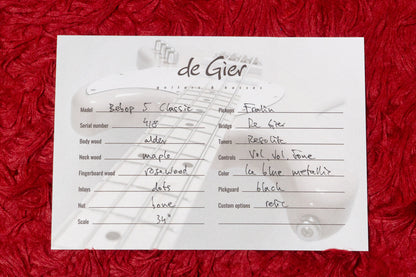 de Gier
guitars & basses
Model Bebop 5 Classic
Serial number 418
Body wood alder
Neck wood maple
Fingerboard wood rosewood
Inlays dots
Nut bone
Scale 34"
Pickups Fralin
Bridge De Gier
Tuners Resolite
Controls Vol, Vol, Tone
Color Ice blue metallic
Pickguard black
Custom options relic